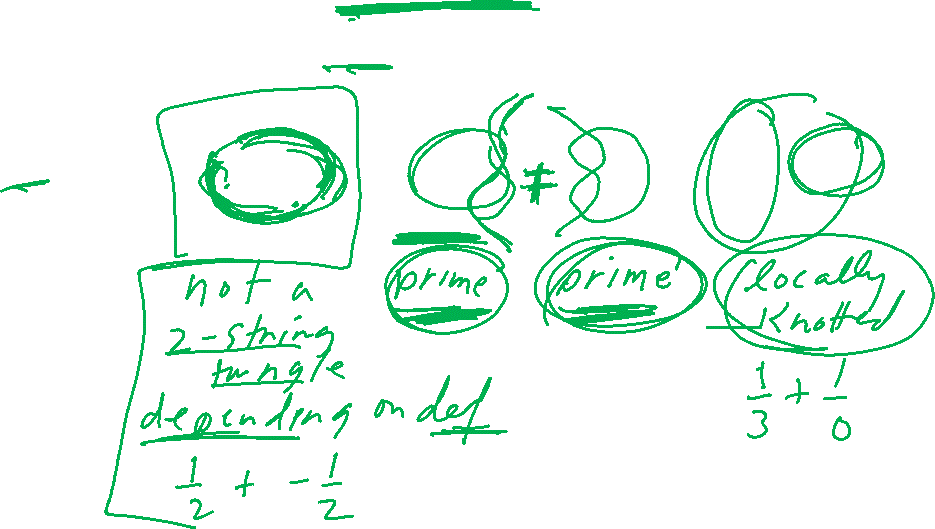 ≠
not a
2-string
tangle
depending on def
1/2 + -1/2
prime
prime
locally
Knotted
1/3 + 1/0